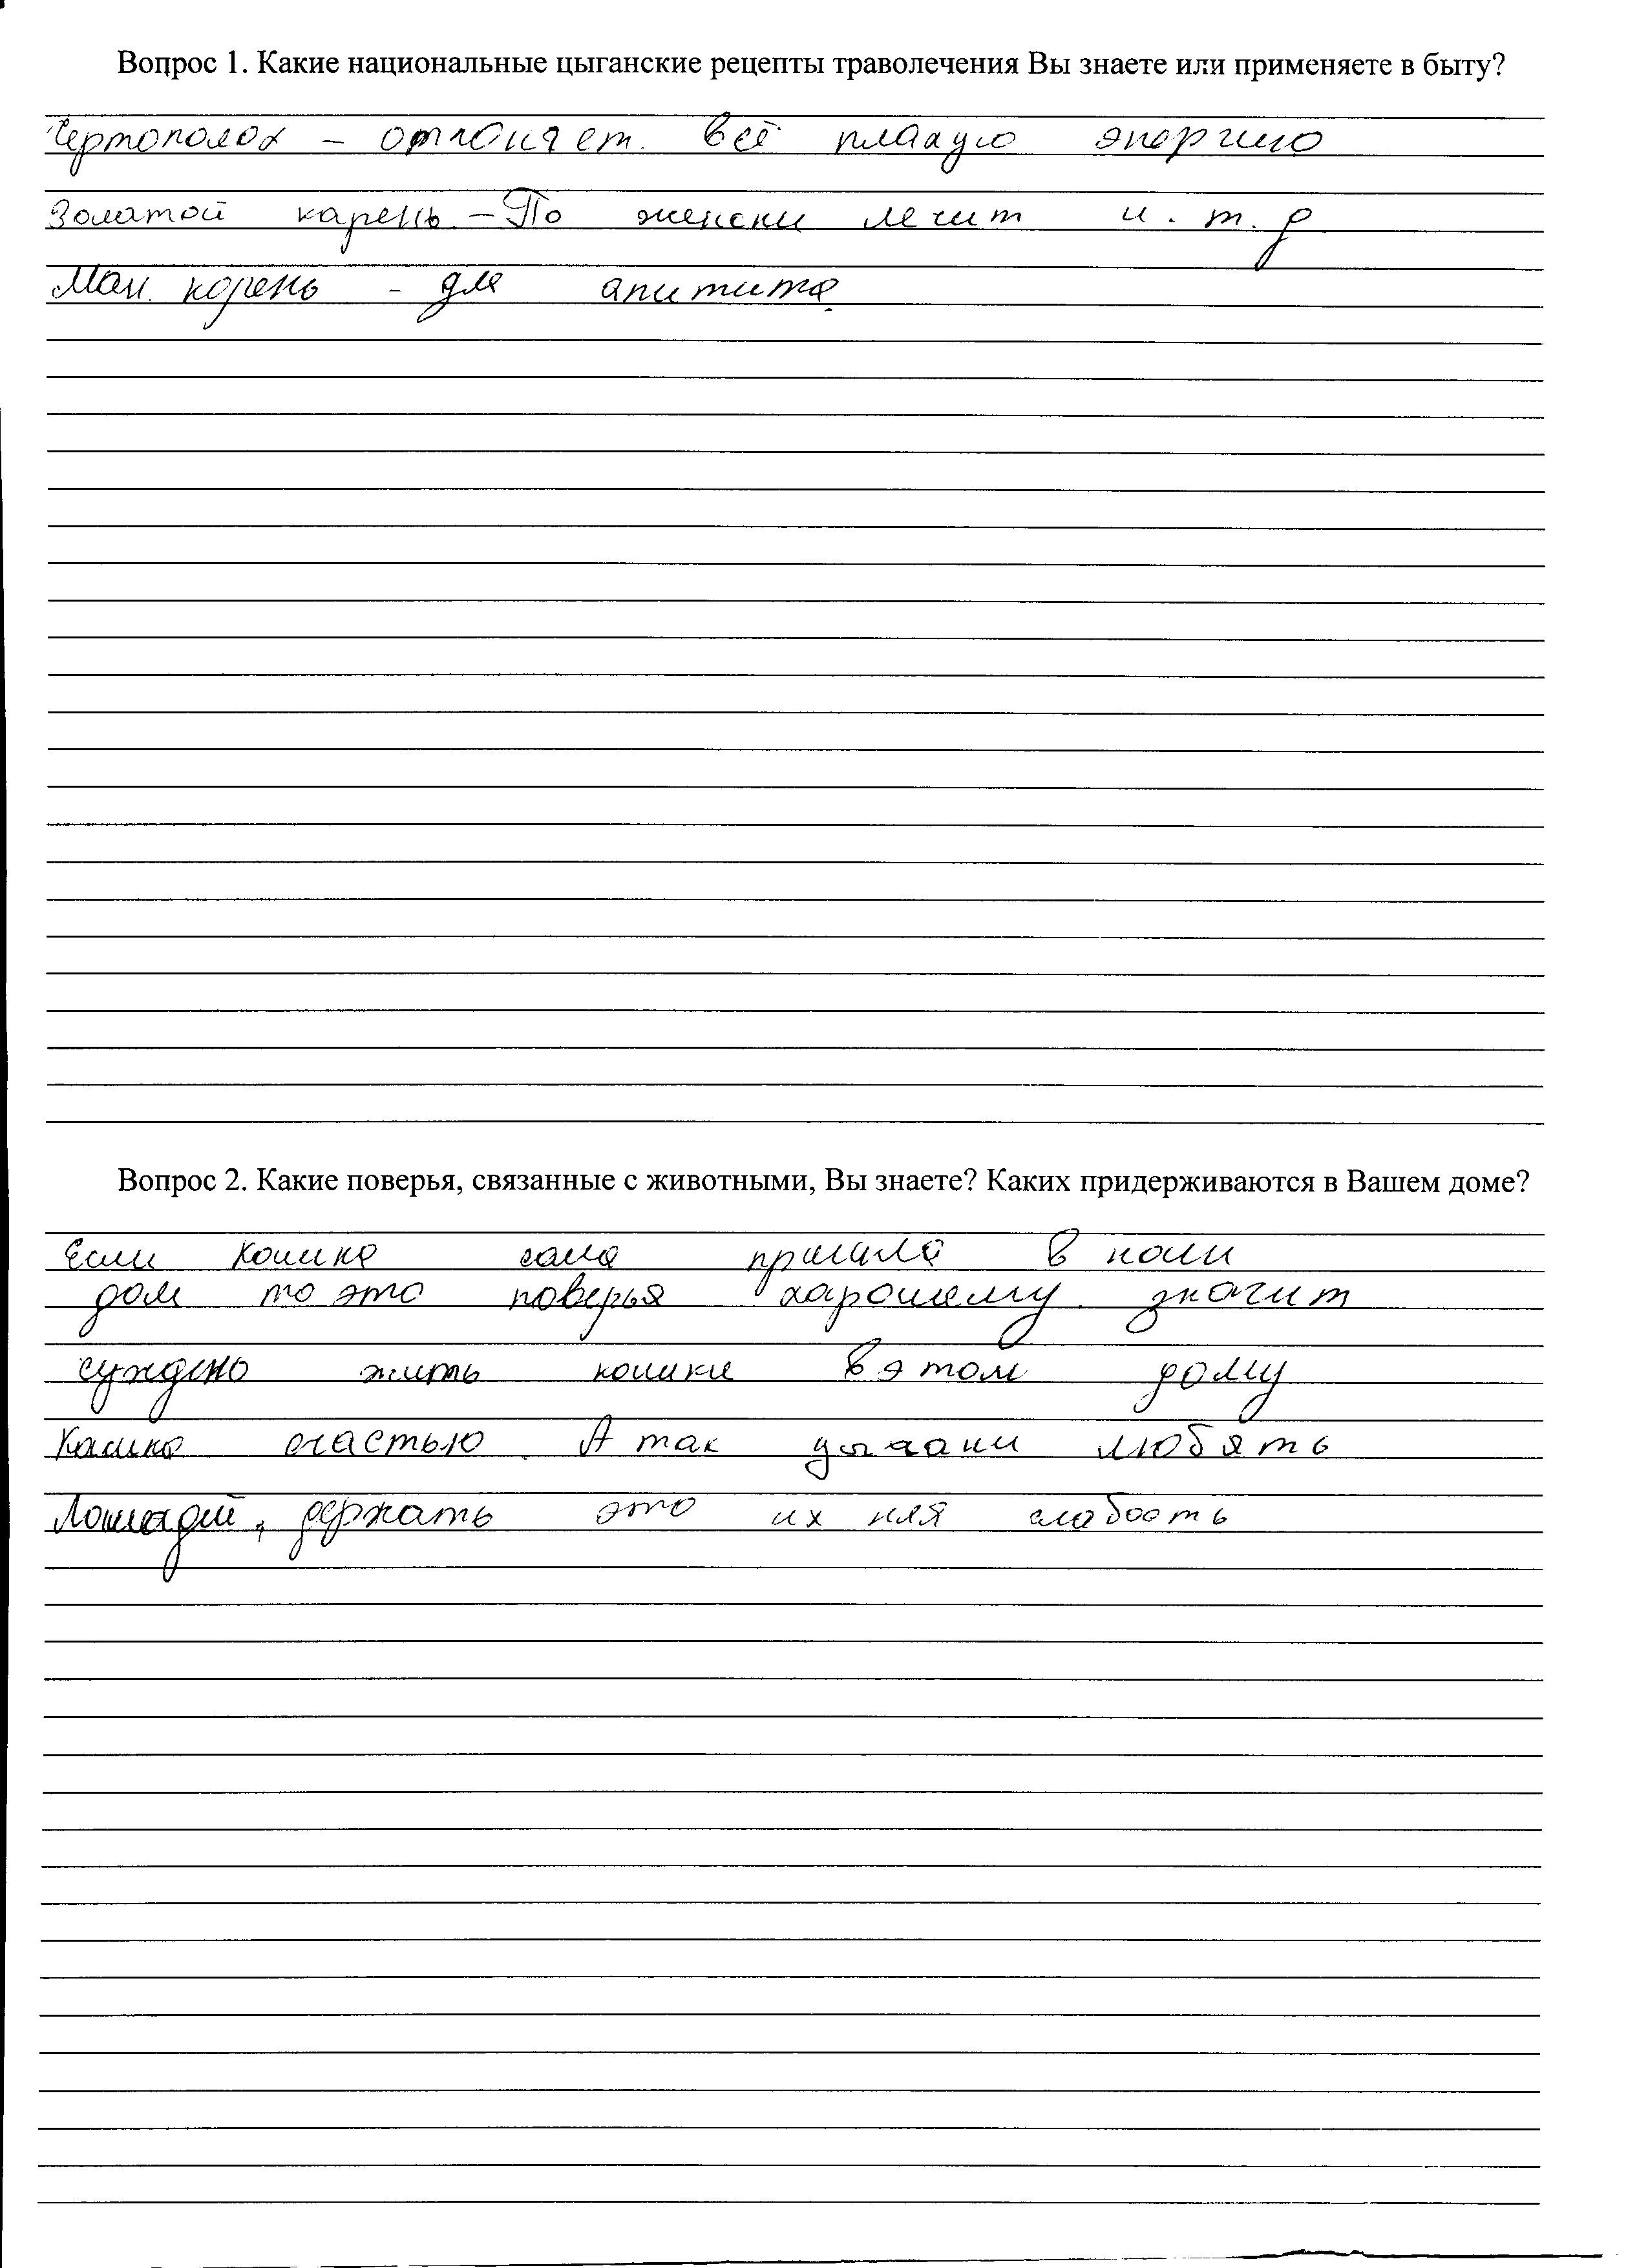 Вопрос 1. Какие национальные цыганские рецепты траволечения Вы знаете или применяете в быту?
Чертополох – отгоняет всё плахую энергию
Золатой карень – По женски лечит и.т.д
Ман корень - для апитита
Вопрос 2. Какие поверья, связанные с животными, Вы знаете? Каких придерживаются в Вашем доме?
Если кошка сама пришла в наш
дом то это поверья харошему значит
суждено жить кошки в этом дому
Кашка счастью А так цыгани любять
Лошадей, держать это их няя слабость